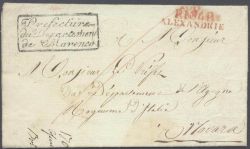 Préfecture
du Département
de Marengo
P.104.P.
ALEXANDRIE
Monsieur
Monsieur le Préfet
du Département de l'Agogna
Royaume d'Italie
à Novara